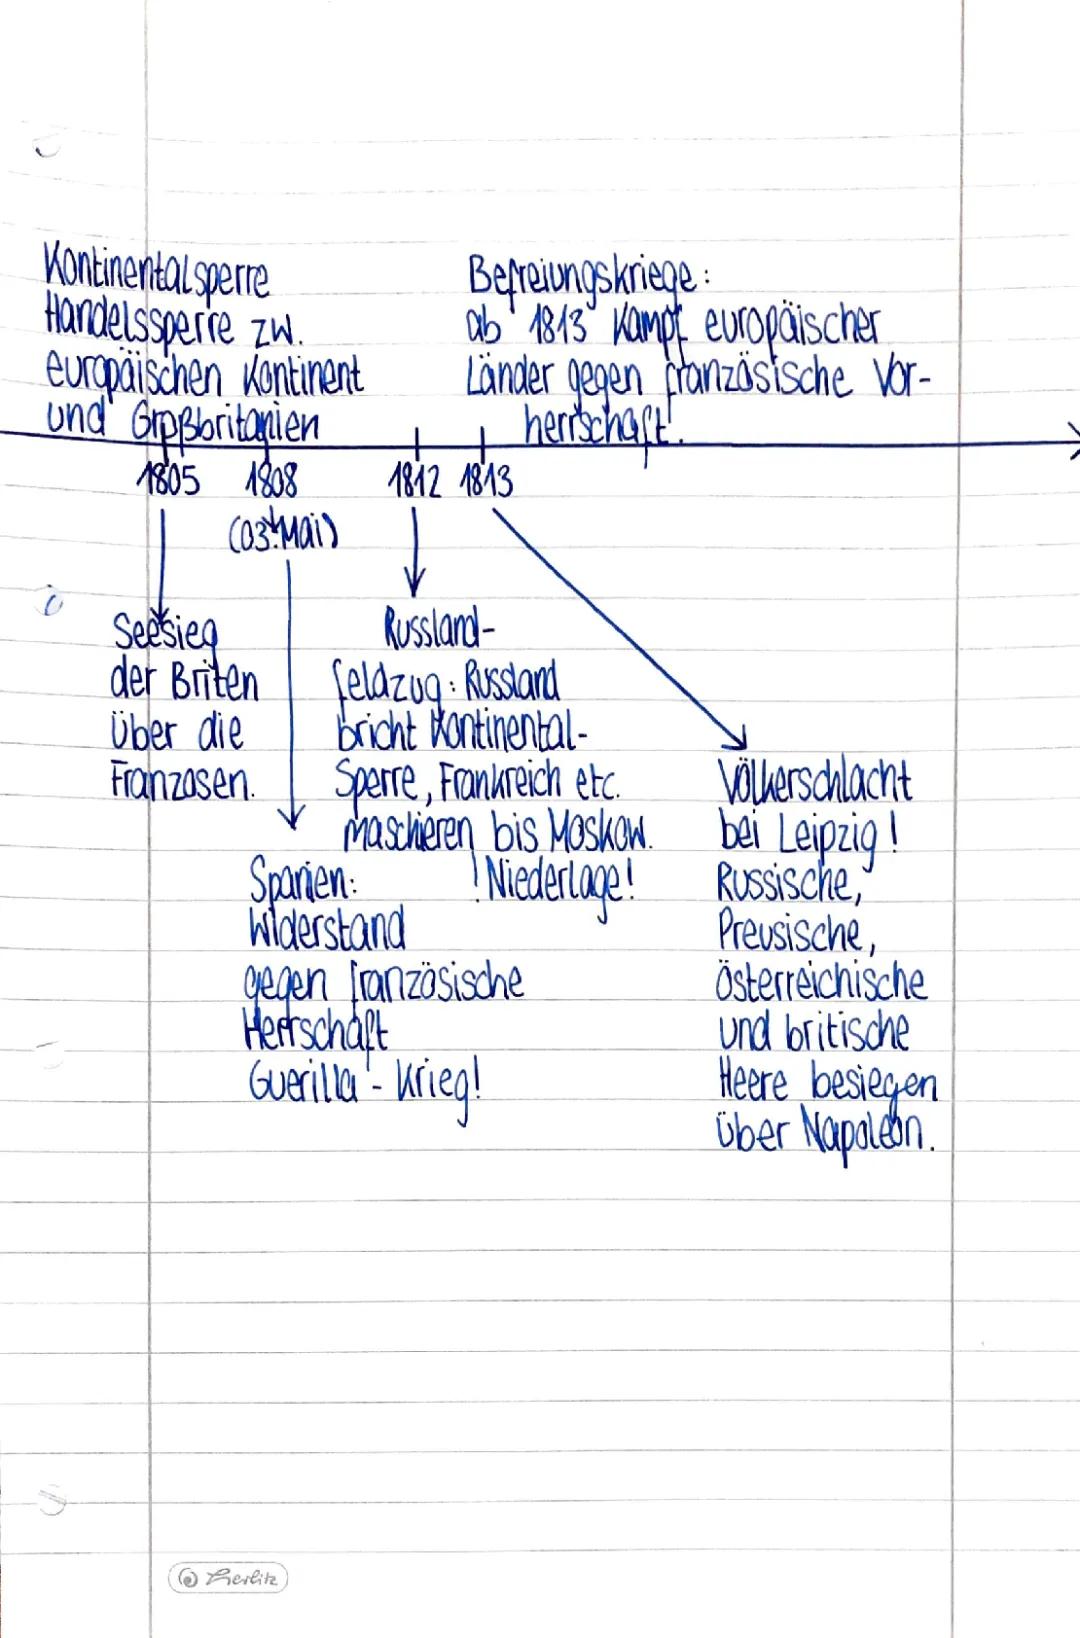 Kontinentalsperre
Handelssperre zw.
europäischen Kontinent
und Großbritanien
Befreiungskriege:
ab 1813 Kampf europäischer
Länder gegen französische Vor-
herrschaft!
1805 1808 1812 1813
(03. Mai)
Seesieg
der Briten
über die
Franzosen.
Russland-
feldzug: Russland
bricht Kontinental-
Sperre, Frankreich etc.
maschieren bis Moskow.
! Niederlage!
Spanien:
Widerstand
gegen französische
Herrschaft
Guerilla - Krieg!
Völkerschlacht
bei Leipzig!
Russische,
Preusische,
Österreichische
und britische
Heere besiegen
über Napoleon.
Herlitz